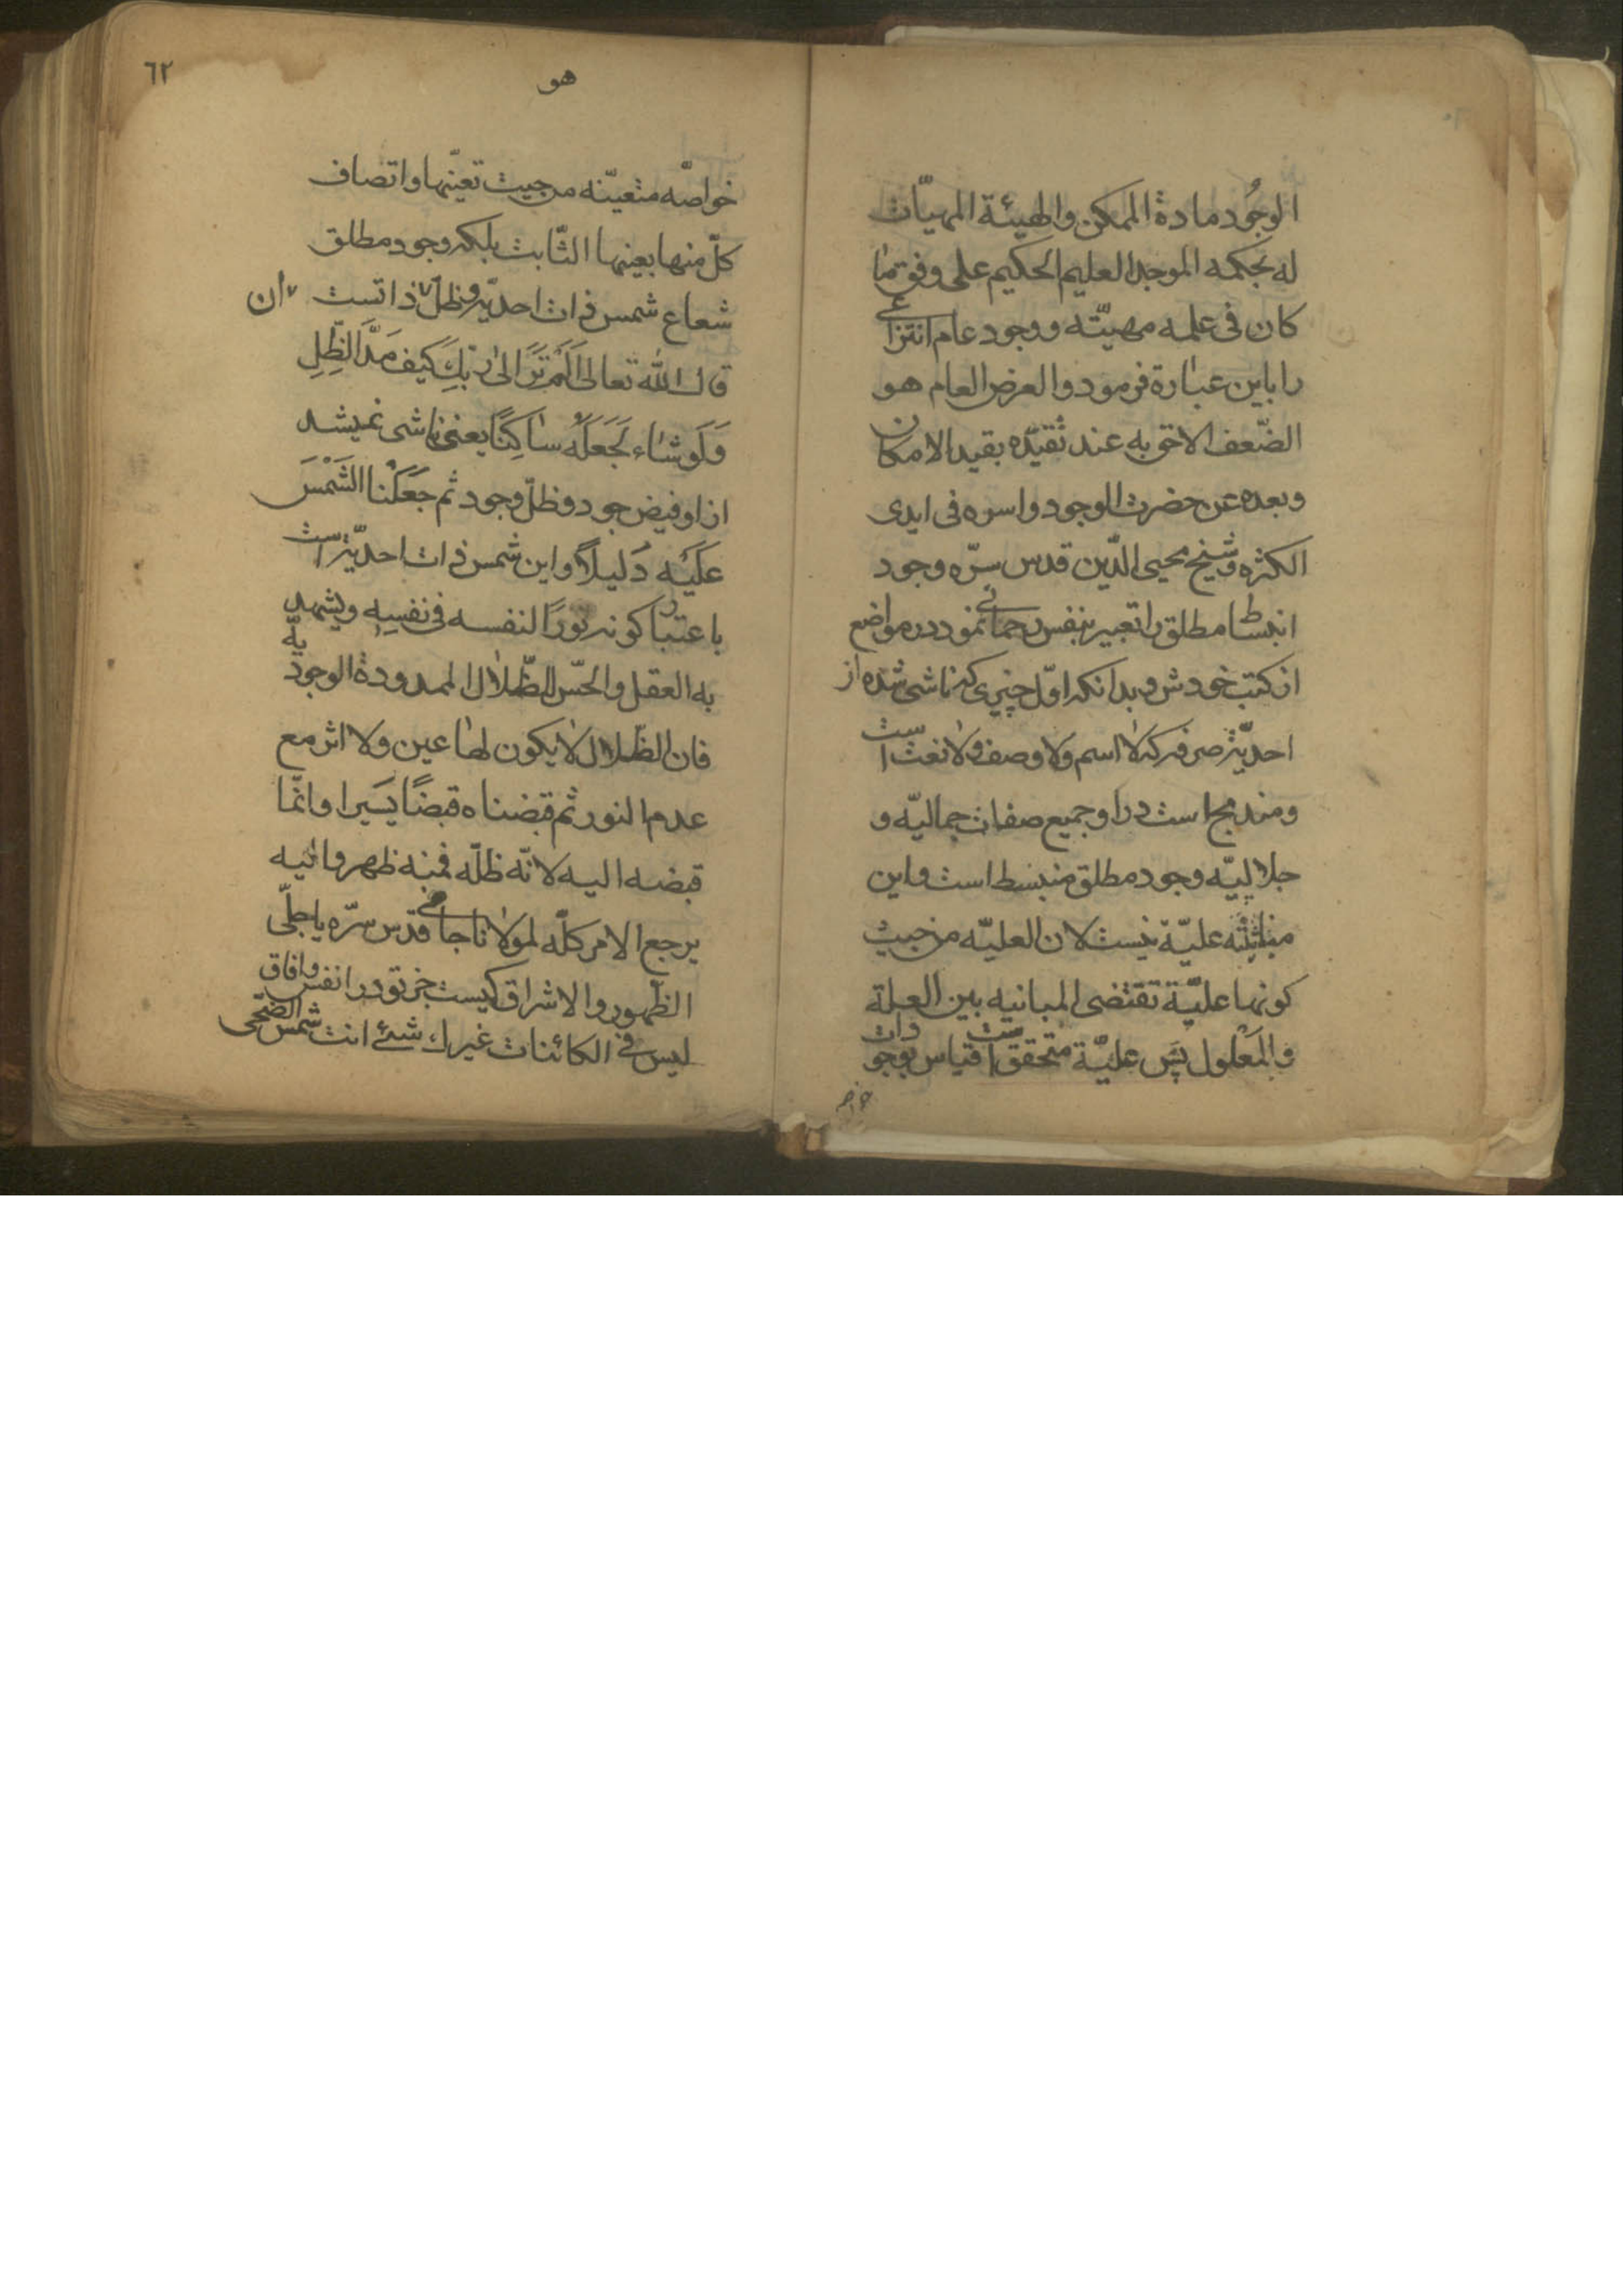 الوجُود مادة الممكن والهيئة المهيّات
له بحكمه الموجد العليم الحكيم على وفق ما
كان فى علمه مهيّته ووجود عام انتزاعى
را باين عبارة فرمود والعرض العام هو
الضّعف الاحق به عند تقيّده بقيد الامكان
وبعده عن حضرت الوجود واسره فى ايدى
الكثره وشيخ محيى الدّين قدس سرّه وجود
انبساط مطلق را تعبير بنفس رحمانى نمود در مواضع
از كتب خودش وبدانكه اوّل چيزى كه ناشى شده از
احديّة صرفه كه لا اسم ولا وصف ولا نعت است
ومندمج است در او جميع صفات جماليّه و
جلاليّه وجود مطلق منبسط است واين
عليّة نيست لان العليّه من حيث
كونها عليّة تقتضى المباينه بين العلة
والمعلول پس عليّة متحقق است قياس بوجودات
خواصه
٦٢
هو
خواصّه متعيّنه من حيث تعيّنها واتصاف
كلّ منها بعينها الثّابت بلكه وجود مطلق
شعاع شمس ذات احديّة وظلّ ذاتست ان
قال الله تعالى اَلَمْ تَرَ الىٰ رَبِّكَ كَيفَ مَدَّ الظِّلِ
وَلَو شاء لَجَعَلَهُ ساكِنًا يعنى ناشى نميشد
از او فيض جود وظلّ وجود ثم جَعَلْنا الشَمْسَ
عَلَيْه دَليلاً واين شمس ذات احديّة است
باعتبار كونه نورًا لنفسه فى نفسِه ويشهد
به العقل والحّس للظّلال الممدودة الوجوديّه
فان الظّلال لا يكون لها عين ولا اثر مع
عدم النور ثم قبضناه قبضًا يَسيرا وانّما
قبضه اليه لانّه ظلّه فمنه ظهر واليه
يرجع الامر كلّه لمولانا جامى قدس سرّه يا جلّى
الظّهور والاشراق كيست جز تو در انفس وافاق
ليس فى الكائنات غيرك شئ انت شمس الضحى